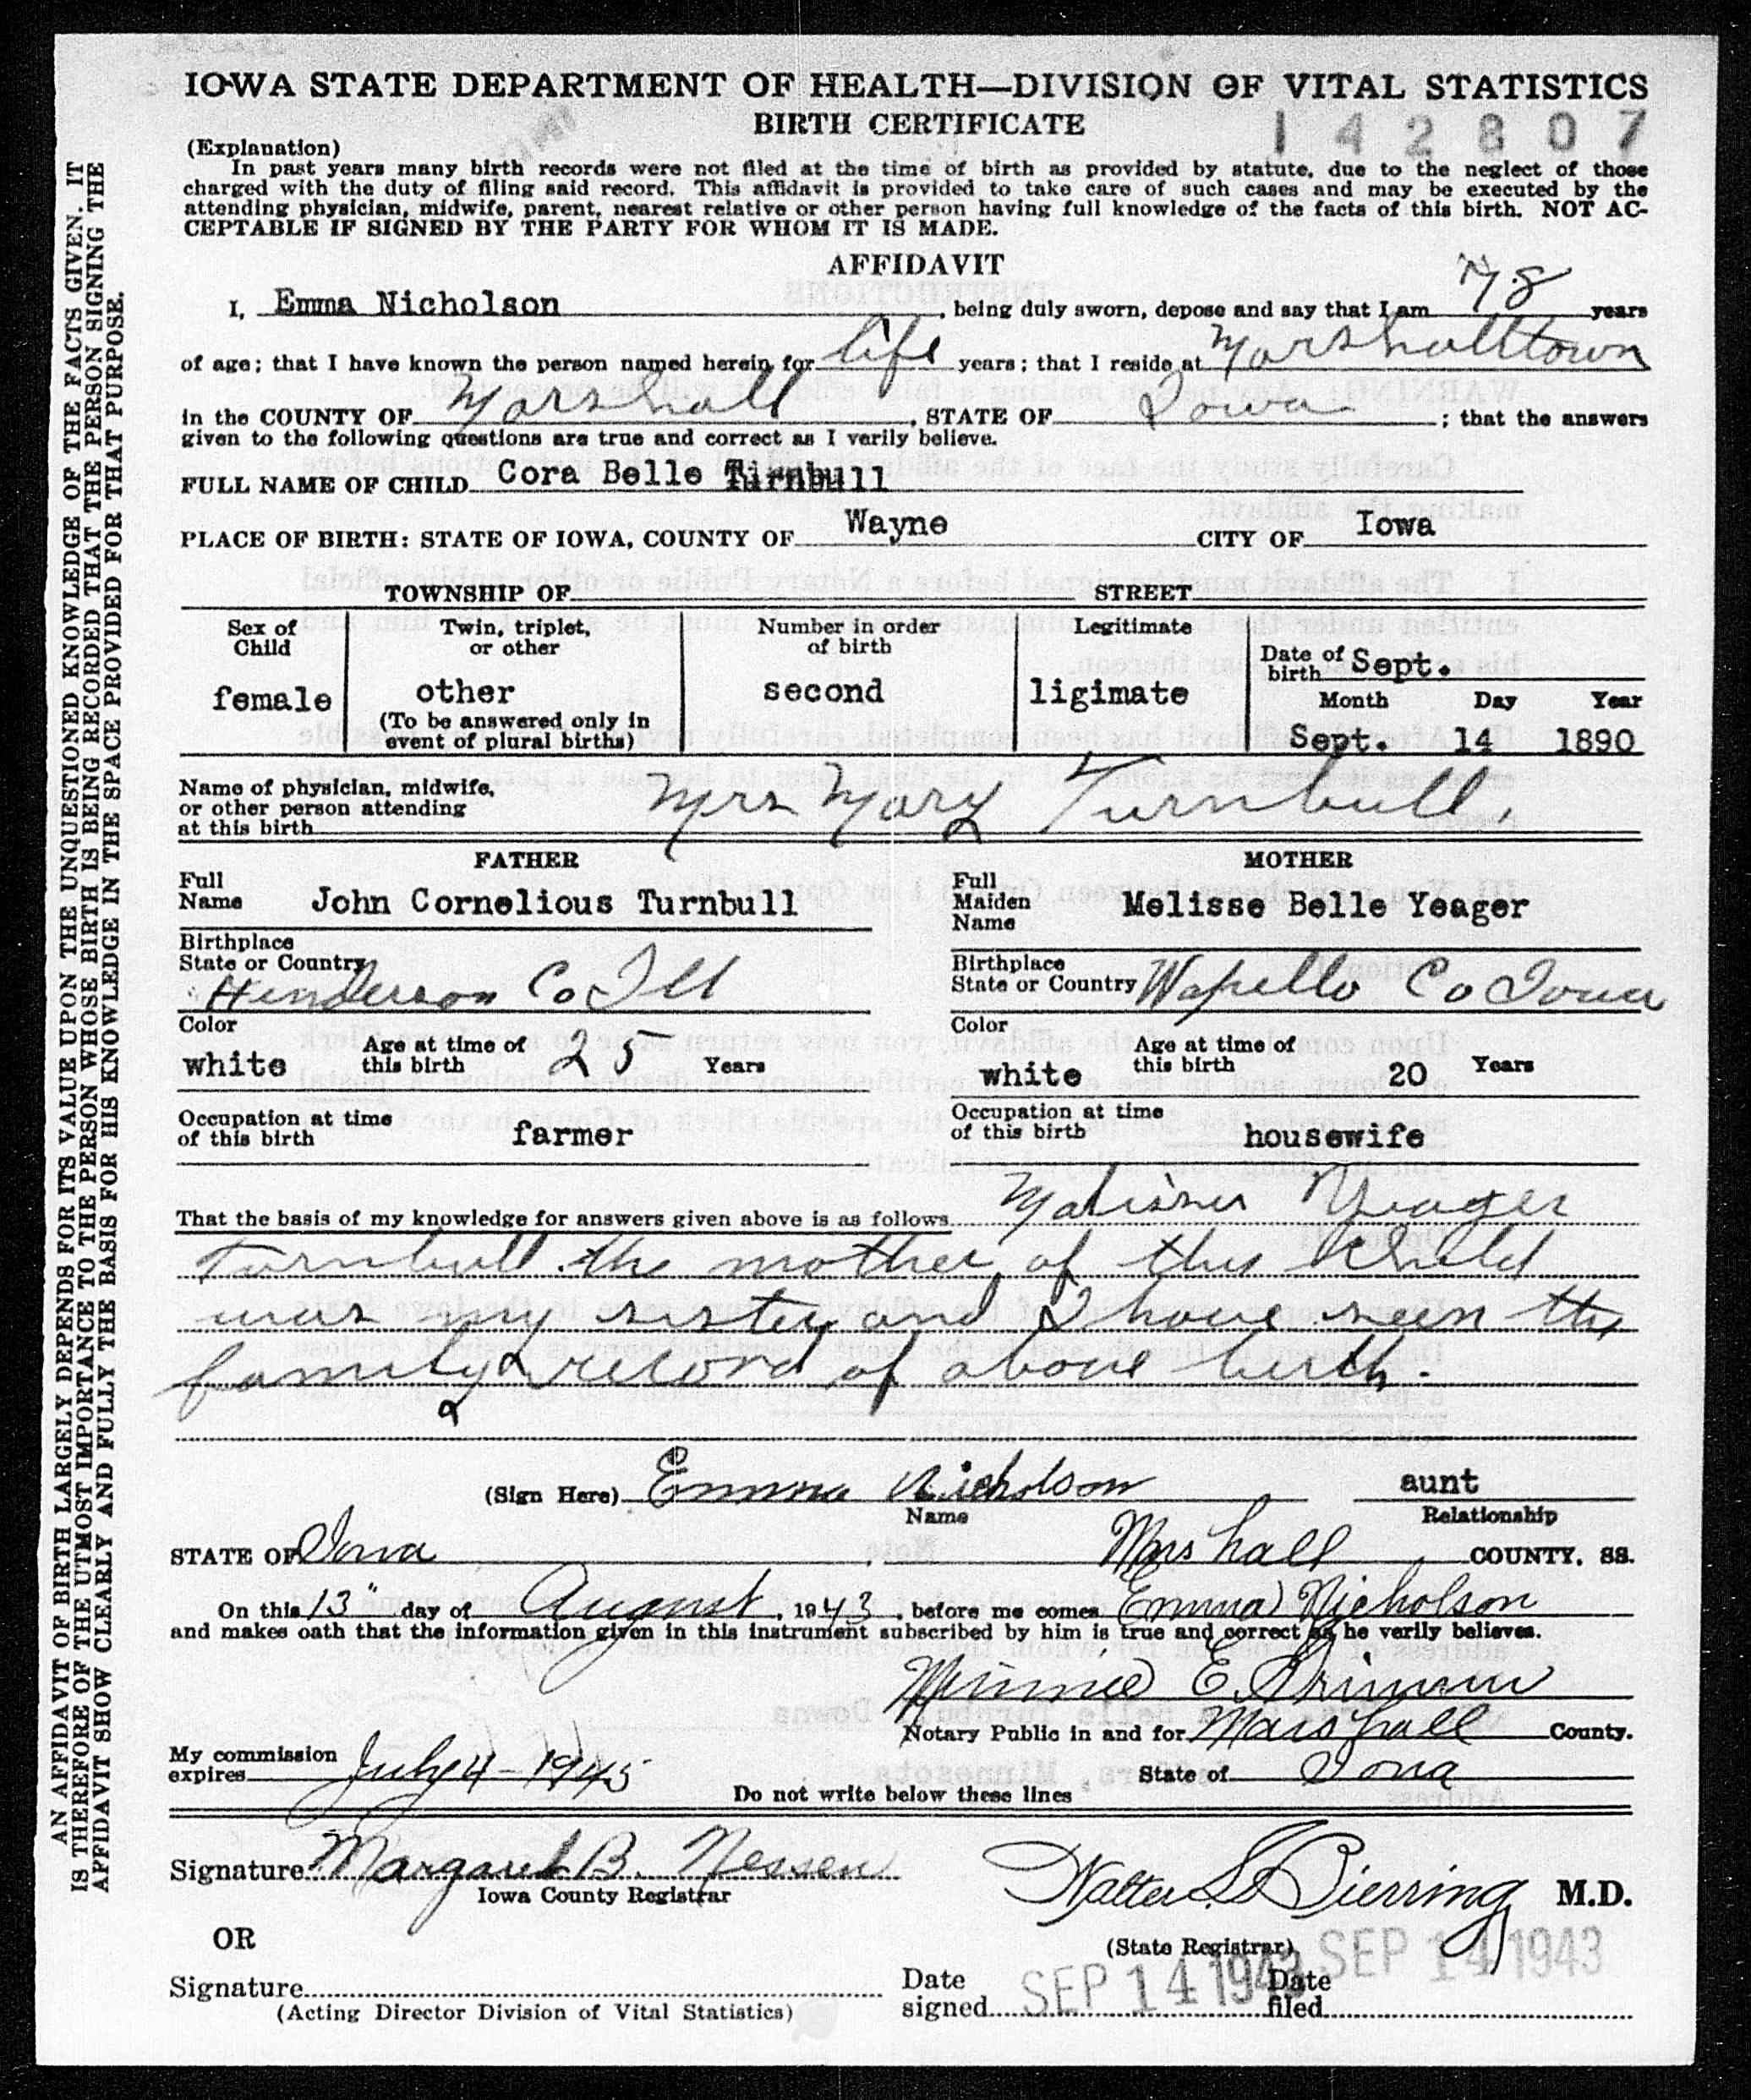 IOWA STATE DEPARTMENT OF HEALTH—DIVISION OF VITAL STATISTICS
BIRTH CERTIFICATE
142807
(Explanation)
In past years many birth records were not filed at the time of birth as provided by statute, due to the neglect of those
charged with the duty of filing said record. This affidavit is provided to take care of such cases and may be executed by the
attending physician, midwife, parent, nearest relative or other person having full knowledge of the facts of this birth. NOT AC-
CEPTABLE IF SIGNED BY THE PARTY FOR WHOM IT IS MADE.
AFFIDAVIT
I, Emma Nicholson, being duly sworn, depose and say that I am 78 years
of age; that I have known the person named herein for life years; that I reside at Marshalltown
in the COUNTY OF Marshall, STATE OF Iowa; that the answers
given to the following questions are true and correct as I verily believe.
FULL NAME OF CHILD Cora Belle Turnbull
PLACE OF BIRTH: STATE OF IOWA, COUNTY OF Wayne CITY OF Iowa
TOWNSHIP OF STREET
Sex of Child female
Twin, triplet, or other other
(To be answered only in event of plural births)
Number in order of birth second
Legitimate ligimate
Date of birth Sept.
Month Day Year
Sept. 14 1890
Name of physician, midwife,
or other person attending
at this birth Mrs Mary Turnbull.
FATHER
Full Name John Cornelious Turnbull
Birthplace
State or Country Henderson Co Ill
Color white Age at time of this birth 25 Years
Occupation at time of this birth farmer
MOTHER
Full Maiden Name Melisse Belle Yeager
Birthplace
State or Country Wapello Co Iowa
Color white Age at time of this birth 20 Years
Occupation at time of this birth housewife
That the basis of my knowledge for answers given above is as follows Yeager
Turnbull the mother of this child
was my sister and I have seen the
family record of above birth.
(Sign Here) Emma Nicholson aunt
Name Relationship
STATE OF Iowa, Marshall COUNTY, SS.
On this 13" day of August, 1943, before me comes Emma Nicholson
and makes oath that the information given in this instrument subscribed by him is true and correct as he verily believes.
Minnie E.
Notary Public in and for Marshall County.
My commission expires July 4-1945 State of Iowa
Do not write below these lines
Signature Margaret B. Nessen
Iowa County Registrar
Walter L. Bierring M.D.
(State Registrar)
OR
Signature
(Acting Director Division of Vital Statistics)
Date signed SEP 14 1943 Date filed SEP 14 1943
AN AFFIDAVIT OF BIRTH LARGELY DEPENDS FOR ITS VALUE UPON THE UNQUESTIONED KNOWLEDGE OF THE FACTS GIVEN. IT
IS THEREFORE OF THE UTMOST IMPORTANCE TO THE PERSON WHOSE BIRTH IS BEING RECORDED THAT THE PERSON SIGNING THE
AFFIDAVIT SHOW CLEARLY AND FULLY THE BASIS FOR HIS KNOWLEDGE IN THE SPACE PROVIDED FOR THAT PURPOSE.